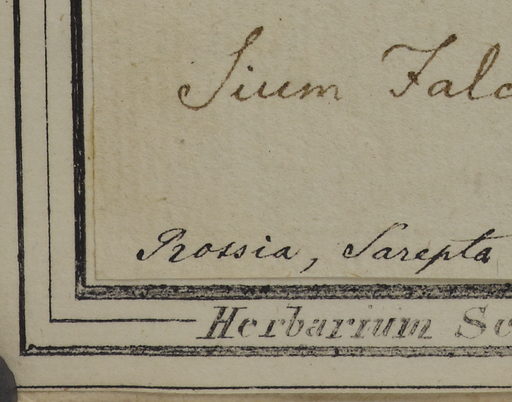 Sium Falc
Rossia, Sarepta
Herbarium Sc